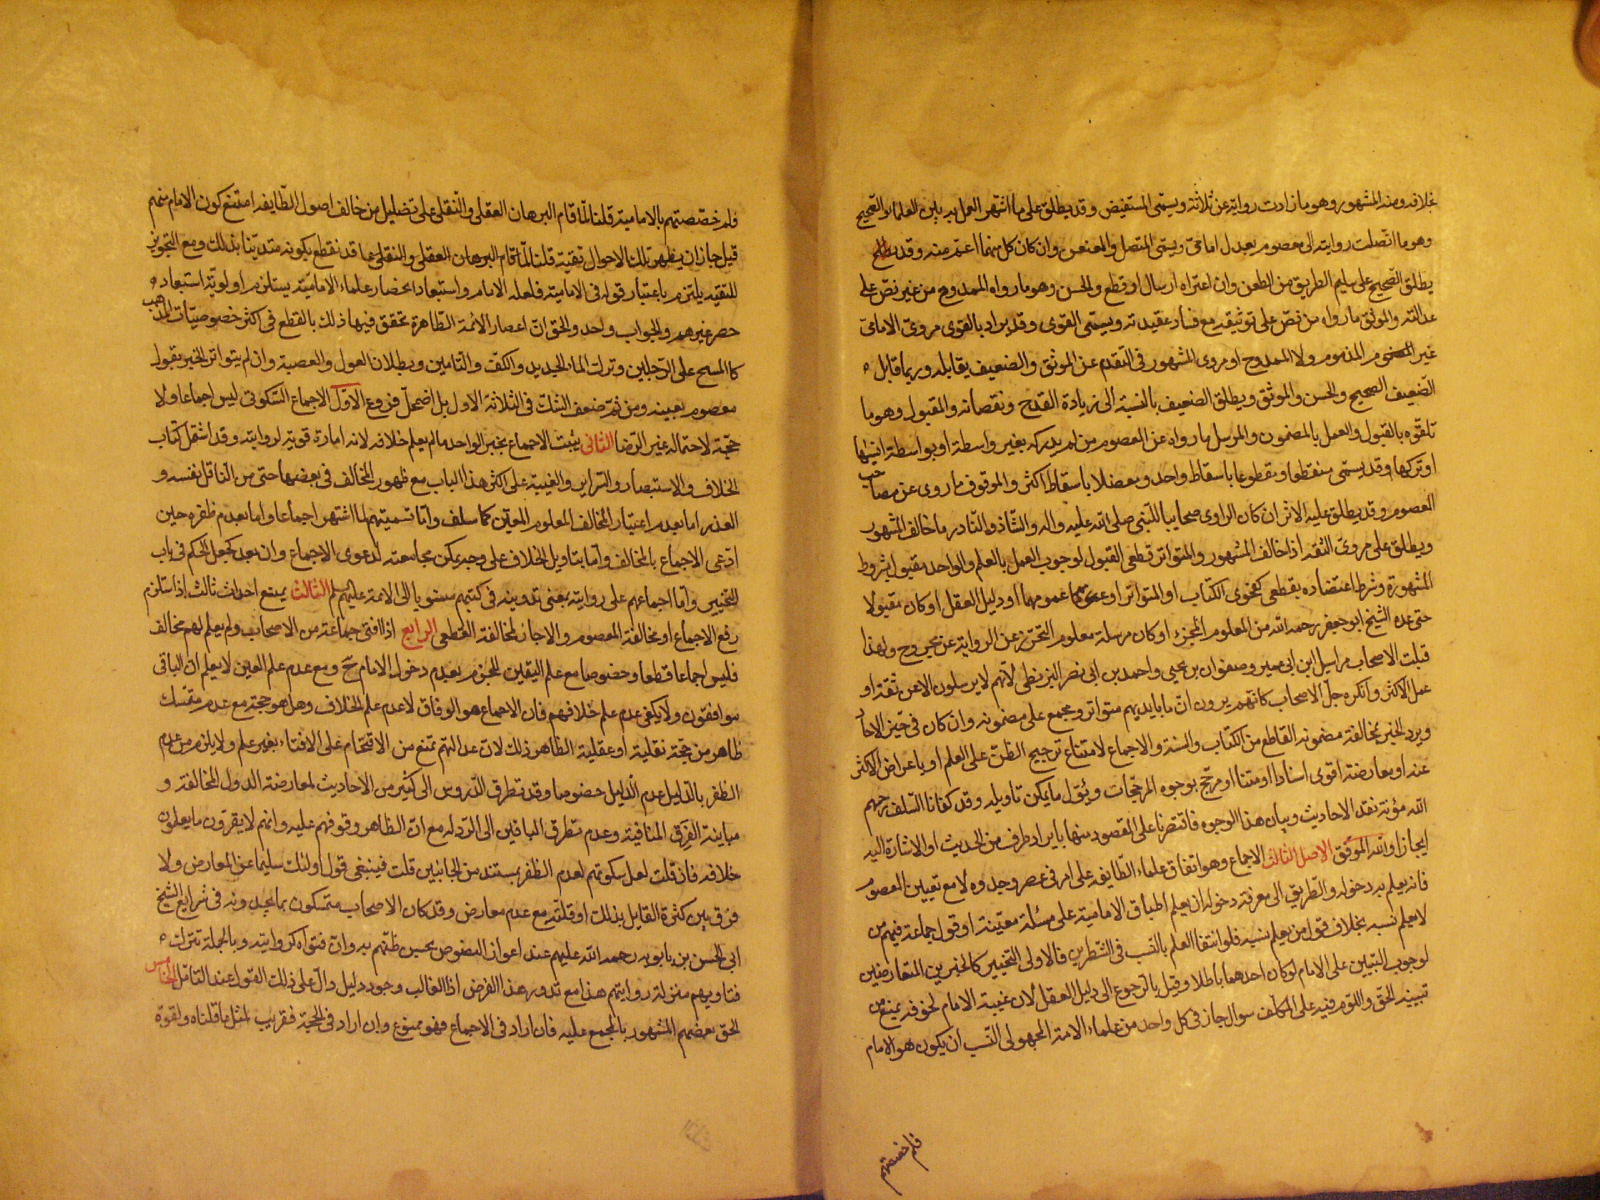 خلافه ومنه المشهور وهو ما زادت رواته عن ثلاثة ويسمى المستفيض وقد يطلق على ما اشتهر العمل به بين العلماء والصحيح
وهو ما اتصلت روايته الى معصوم بعدل امامي ويسمى المتصل والمعنعن وان كان كل منهما اعم منه وقد
يطلق الصحيح على سليم الطريق من الطعن وان اعتراه ارسال او قطع والحسن وهو ما رواه الممدوح من غير نص على
عدالته والموثق ما رواه من نص على توثيقه مع فساد عقيدته ويسمى القوى وقد يراد بالقوى مروى الامامى
غير المذموم ولا الممدوح او مروى المشهور فى التقدم عن الموثق والضعيف يقابله وربما قابل
الضعيف الصحيح والحسن والموثق ويطلق الضعيف بالنسبة الى زيادة القدح ونقصانه والمقبول وهو ما
تلقوه بالقبول والعمل بالمضمون والمرسل ما رواه عن المعصوم من لم يدركه بغير واسطة او بواسطة نسيها
او تركها وقد يسمى منقطعا ومقطوعا باسقاط واحد ومعضلا باسقاط اكثر والموقوف ما روى عن مصاحب
المعصوم وقد يطلق عليه الاثر ان كان الراوى صحابيا للنبى صلى الله عليه واله والشاذ والنادر ما خالف المشهور
ويطلق على مروى الثقة اذا خالف المشهور والمتواتر قطعى القبول لوجوب العمل بالعلم والواحد مقبول بشروط
المشهورة وشرط اعتضاده بقطعى كفحوى الكتاب او المتواتر او عمومهما او دليل العقل او كان مقبولا
حتى عده الشيخ ابو جعفر رحمه الله من المعلوم المخبر او كان مرسله معلوم التحرز عن الرواية عن مجروح ولهذا
قبلت الاصحاب مراسيل ابن ابى عمير وصفوان بن يحيى واحمد بن ابى نصر البزنطى لانهم لا يرسلون الا عن ثقة او
عمل الاكثر وانكره جل الاصحاب كانهم يرون ان ما بايديهم متواتر ومجمع على مضمونه وان كان فى حيز الاحاد
ويرد الخبر بمخالفة مضمونه القاطع من الكتاب والسنة والاجماع لامتناع ترجيح الظن على العلم او باعراض الاكثر
عنه او معارضة اقوى اسنادا او متنا او مرجح بوجوه المرجحات ويؤل ما يمكن تاويله وقد كفانا السلف رحمهم
الله مؤنة نقد الاحاديث وبيان هذا الوجوه فاقتصرنا على المقصود منها بايراد طرف من الحديث او الاشارة اليه
ايجازا والله الموفق الاصل الثالث الاجماع وهو اتفاق علماء الطايفه على امر فى عصر وجدوه لا مع تعيين المعصوم
فانه يعلم به دخوله والطريق الى معرفة دخوله ان يعلم اطباق الامامية على مسئلة معينة او قول جماعة فيهم من
لا يعلم نسبه بخلاف قول من يعلم نسبه فلو انتفا العلم بالنسب فى الشطرين فالاولى التخيير كالخبرين المتعارضين
لوجوب التبيين على الامام لو كان احدهما باطلا وقيل بالرجوع الى دليل العقل لان غيبة الامام لخوف يمنع من
تبيينه الحق واللوم فيه على المكلف سوال جاز فى كل واحد من علماء الامة المجهولى النسب ان يكون هو الامام
فلم خصصتم
فلم خصصتم بالامامية قلنا لما قام البرهان العقلى والنقلى على تضليل من خالف اصول الطايفه امتنع كون الامام منهم
قيل جاز ان يظهر تلك الاحوال تقية قلنا لما قام البرهان العقلى والنقلى بما قد نقطع بكونه متدينا بذلك ومع التجويز
للتقيه يلتزم باعتبار قوله فى الامامية فلعله الامام واستبعاد انحصار علماء الامامية يستلزم اولوية استبعاد
حصر غيرهم والجواب واحد والحق ان اعصار الائمة الطاهرة تحقق فيها ذلك بالقطع فى كثير خصوصيات المذهب
كالمسح على الرجلين وترك الماء الجديد والكتف والتامين وبطلان العول والعصبة وان لم يتواتر الخبر بقول
معصوم بعينه ومن ثم ضعف الثلث فى الثلاثة الاول بل اضمحل فروع الاول الاجماع السكوتى ليس اجماعا ولا
حجة لاحتماله غير الرضا الثانى يثبت الاجماع بخبر الواحد ما لم يعلم خلافه لانه امارة قوية كروايته وقد اشتمل كتاب
الخلاف والاستبصار والسراير والغنية على اكثر هذا الباب مع ظهور المخالف فى بعضها حتى من الناقل نفسه و
العذر اما بعدم اعتبار المخالف المعلوم المعين كما سلف واما تسميتهم لما اشتهر اجماعا واما بعدم ظفره حين
ادعى الاجماع بالمخالف واما بتاويل الخلاف على وجه يمكن مجامعته لدعوى الاجماع وان بعد كجعل الحكم فى باب
التخيير واما اجماعهم على روايته بمعنى تدوينه فى كتبهم منسوبا الى الائمة عليهم السلم الثالث يمتنع احداث ثالث اذا استلزم
رفع الاجماع او مخالفة المعصوم والا جاز لمخالفة القطعى الرابع اذا افتى جماعة من الاصحاب ولم يعلم لهم مخالف
فليس اجماعا قطعا وخصوصا مع علم اليقين للجزم بعدم دخول الامام ح ومع عدم علم العين لا يعلم ان الباقى
موافقون ولا يكفى عدم علم خلافهم فان الاجماع هو الوفاق لا عدم علم الخلاف وهل هو حجة مع عدم متمسك
ظاهر من حجة نقلية او عقلية الظاهر ذلك لان عدالتهم تمنع من الاقتحام على الافتاء بغير علم ولا يلزم من عدم
الظفر بالدليل عدم الدليل خصوصا وقد تطرق الدروس الى كثير من الاحاديث لمعارضة الدول المخالفة و
مباينة الفرق المنافية وعدم تطرق الباقين الى الرد له مع ان الظاهر وقوفهم عليه وانهم لا يقرون ما يعلمون
خلافه فان قلت لعل سكوتهم لعدم الظفر بمستند من الجانبين قلت فيبقى قول اولئك سليما عن المعارض ولا
فرق بين كثرة القايل بذلك او قلته مع عدم معارض وقد كان الاصحاب متمسكون بما يجدونه فى شرايع الشيخ
ابى الحسن بن بابويه رحمه الله عليهم عند اعواز النصوص بحسن ظنهم به وان فتواه كروايته وبالجملة تنزل
فتاويهم منزلة روايتهم هذا مع ندور هذا الفرض اذ الغالب وجود دليل دال على ذلك القول عند التامل الخامس
الحق بعضهم المشهور بالمجمع عليه فان اراد فى الاجماع فهو ممنوع وان اراد فى الحجية فقريب لمثل ما قلناه ولقوة